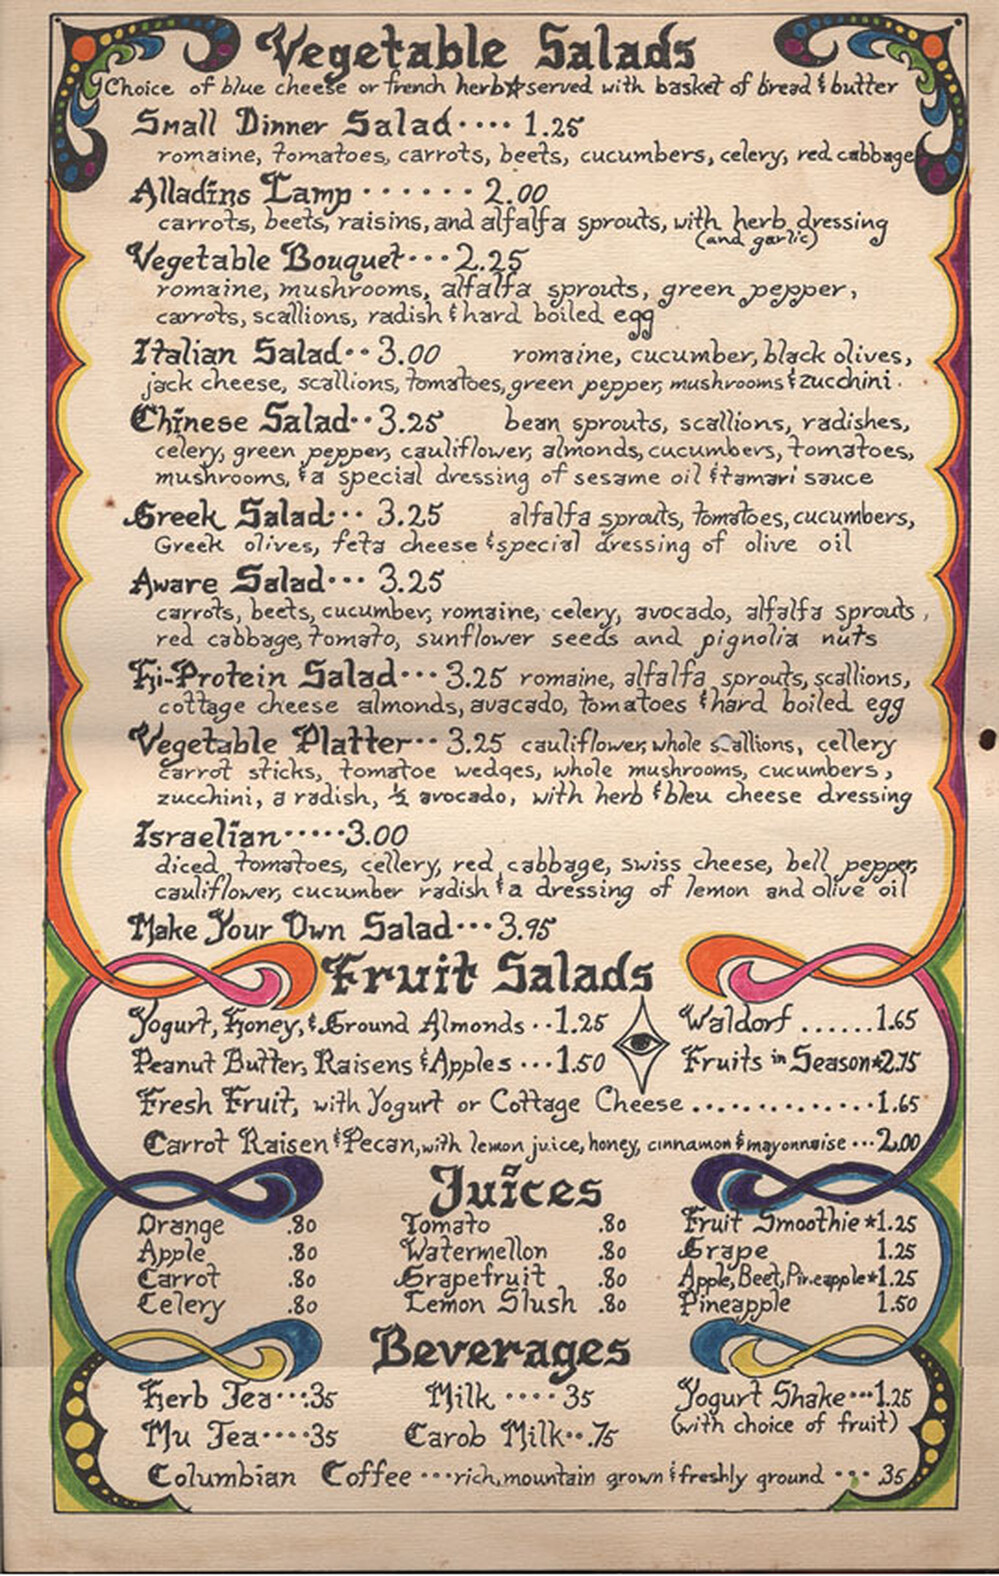 Vegetable Salads
Choice of blue cheese or french herb☆served with basket of bread & butter
Small Dinner Salad···· 1.25
romaine, tomatoes, carrots, beets, cucumbers, celery, red cabbage
Alladins Lamp ······ 2.00
carrots, beets, raisins, and alfalfa sprouts, with herb dressing
(and garlic)
Vegetable Bouquet···2.25
romaine, mushrooms, alfalfa sprouts, green pepper,
carrots, scallions, radish & hard boiled egg
Italian Salad··3.00 romaine, cucumber, black olives,
jack cheese, scallions, tomatoes, green pepper, mushrooms & zucchini.
Chinese Salad··3.25 bean sprouts, scallions, radishes,
celery, green pepper, cauliflower, almonds, cucumbers, tomatoes,
mushrooms, & a special dressing of sesame oil & tamari sauce
Greek Salad··· 3.25 alfalfa sprouts, tomatoes, cucumbers,
Greek olives, feta cheese & special dressing of olive oil
Aware Salad··· 3.25
carrots, beets, cucumber, romaine, celery, avocado, alfalfa sprouts,
red cabbage, tomato, sunflower seeds and pignolia nuts
Hi-Protein Salad··· 3.25 romaine, alfalfa sprouts, scallions,
cottage cheese almonds, avacado, tomatoes & hard boiled egg
Vegetable Platter·· 3.25 cauliflower, whole scallions, cellery
carrot sticks, tomatoe wedges, whole mushrooms, cucumbers,
zucchini, a radish, ½ avocado, with herb & bleu cheese dressing
Israelian·····3.00
diced tomatoes, cellery, red cabbage, swiss cheese, bell pepper,
cauliflower, cucumber radish & a dressing of lemon and olive oil
Make Your Own Salad···3.95
Fruit Salads
Yogurt, Honey, & Ground Almonds··1.25 Waldorf ......1.65
Peanut Butter, Raisens & Apples ···1.50 Fruits in Season*2.75
Fresh Fruit, with Yogurt or Cottage Cheese ..............1.65
Carrot Raisen & Pecan, with lemon juice, honey, cinnamon & mayonnaise ···2.00
Juices
Orange .80 Tomato .80 Fruit Smoothie*1.25
Apple .80 Watermellon .80 Grape 1.25
Carrot .80 Grapefruit .80 Apple, Beet, Pineapple*1.25
Celery .80 Lemon Slush .80 Pineapple 1.50
Beverages
Herb Tea···.35 Milk ···· 35 Yogurt Shake···1.25
Mu Tea····35 Carob Milk··.75 (with choice of fruit)
Columbian Coffee ···rich, mountain grown & freshly ground ··· 35